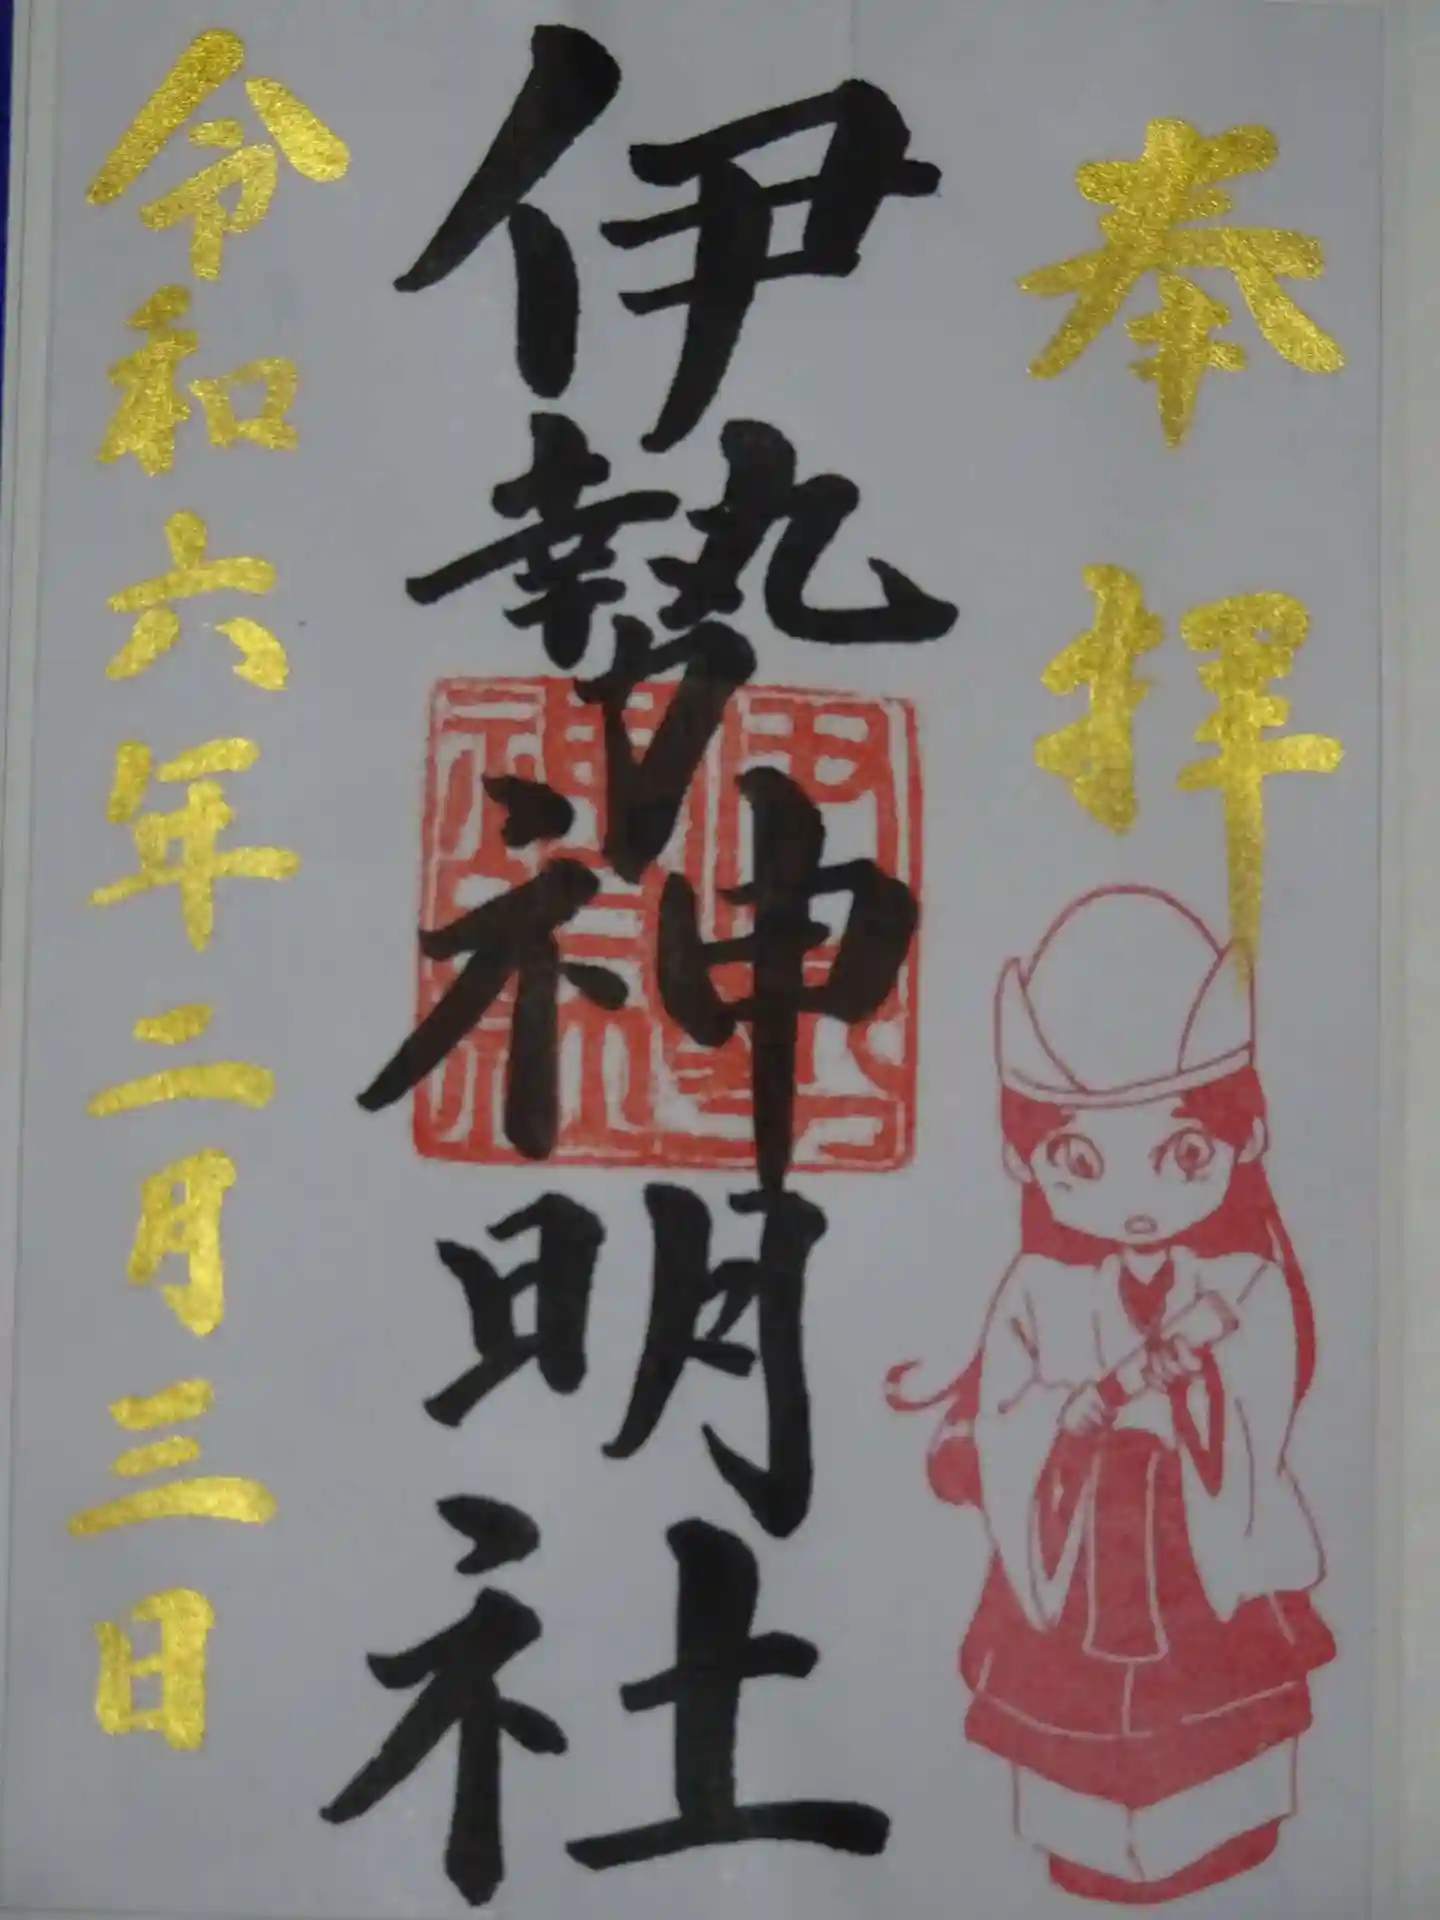 奉拝
伊勢神明社
令和六年二月三日